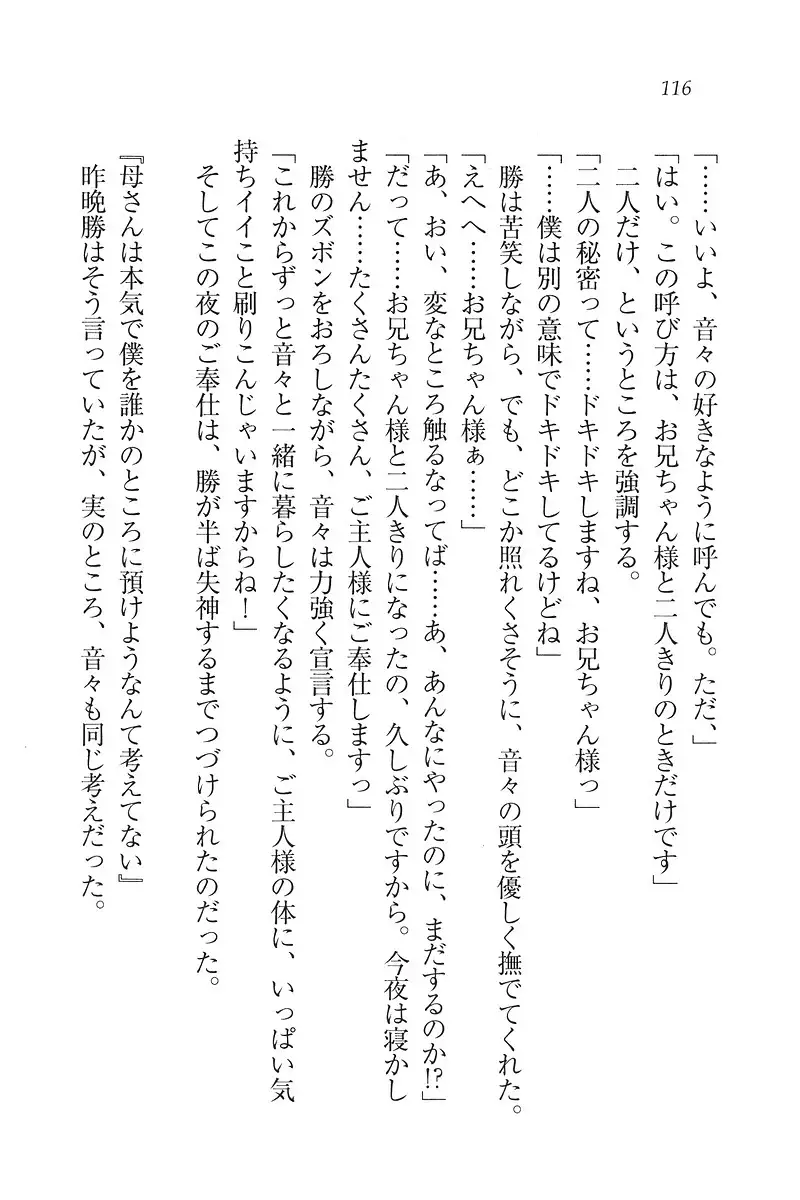 116
「……いいよ、音々の好きなように呼んでも。ただ、」
「はい。この呼び方は、お兄ちゃん様と二人きりのときだけです」
二人だけ、というところを強調する。
「二人の秘密って……ドキドキしますね、お兄ちゃん様っ」
「……僕は別の意味でドキドキしてるけどね」
勝は苦笑しながら、でも、どこか照れくさそうに、音々の頭を優しく撫でてくれた。
「えへへ……お兄ちゃん様ぁ……」
「あ、おい、変なところ触るなってば……あ、あんなにやったのに、まだするのか!?」
「だって……お兄ちゃん様と二人きりになったの、久しぶりですから。今夜は寝かし
ません……たくさんたくさん、ご主人様にご奉仕しますっ」
勝のズボンをおろしながら、音々は力強く宣言する。
「これからずっと音々と一緒に暮らしたくなるように、ご主人様の体に、いっぱい気
持ちイイこと刷りこんじゃいますからね！」
そしてこの夜のご奉仕は、勝が半ば失神するまでつづけられたのだった。
『母さんは本気で僕を誰かのところに預けようなんて考えてない』
昨晩勝はそう言っていたが、実のところ、音々も同じ考えだった。